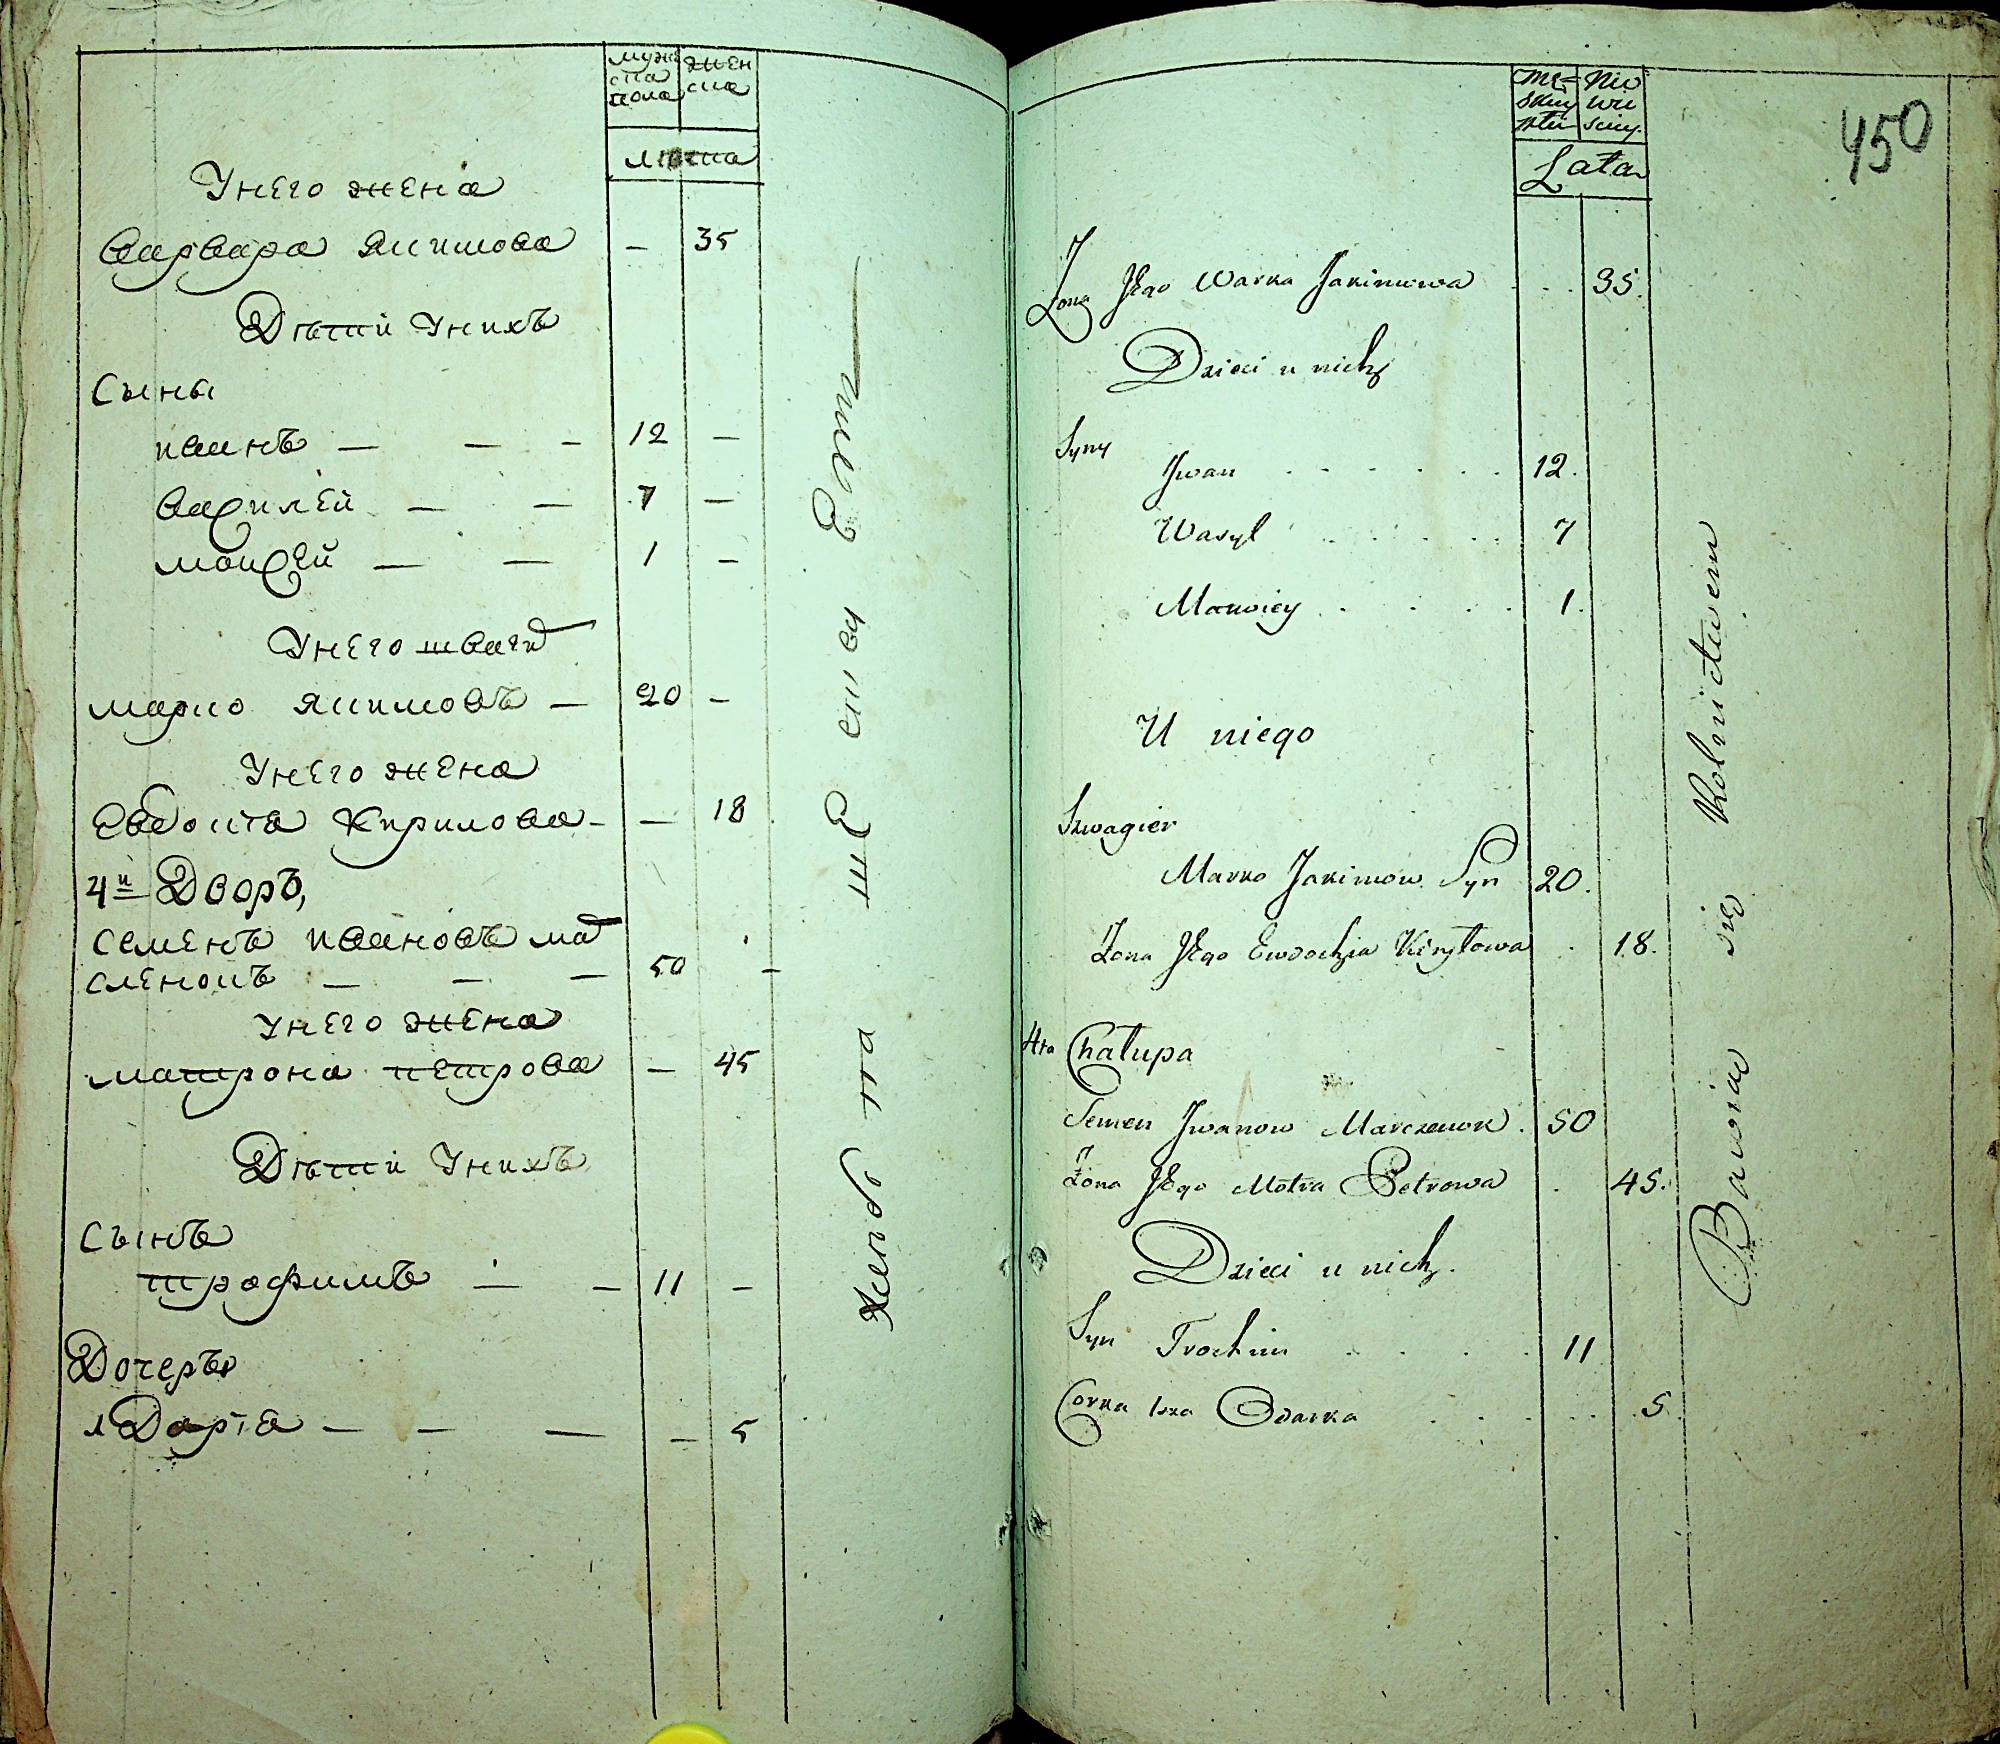 мужес
ка
пола
женс
ка
лѣта
Унего жена
варвара якимова — 35
Дѣти Унихъ
Сыны
иванъ — — — 12 —
василей — — 7 —
моисей — — 1 —
Унего шваги
марко якимовъ — 20 —
Унего жена
Евдокія Кирилова — — 18
4й Дворъ,
семенъ ивановъ
— — — 50 —
Унего жена
матрона петрова — 45
Дѣти Унихъ
Сынъ
трофимъ — — 11 —
Дочерь
Дарія — — — — 5
450
Mę=
skiey
płci
Nie
wie
sciey.
Lata
Żona Jego Warka Jakimowa . . . 35.
Dzieci u nich
Syny
Jwan . . . . . . 12.
Wasyl . . . . . 7
. . . . 1.
U niego
Szwagier
Marko Jakimow Syn 20.
Żona Jego Ewdochia Kiryłowa . 18.
4ta Chałupa
Semen Jwanow . 50
Żona Jego Motra Petrowa . 45.
Dzieci u nich.
Syn Trochim . . . . 11
Corka 1sza Odarka . . . . . 5.
Bawią się Rolnictwem